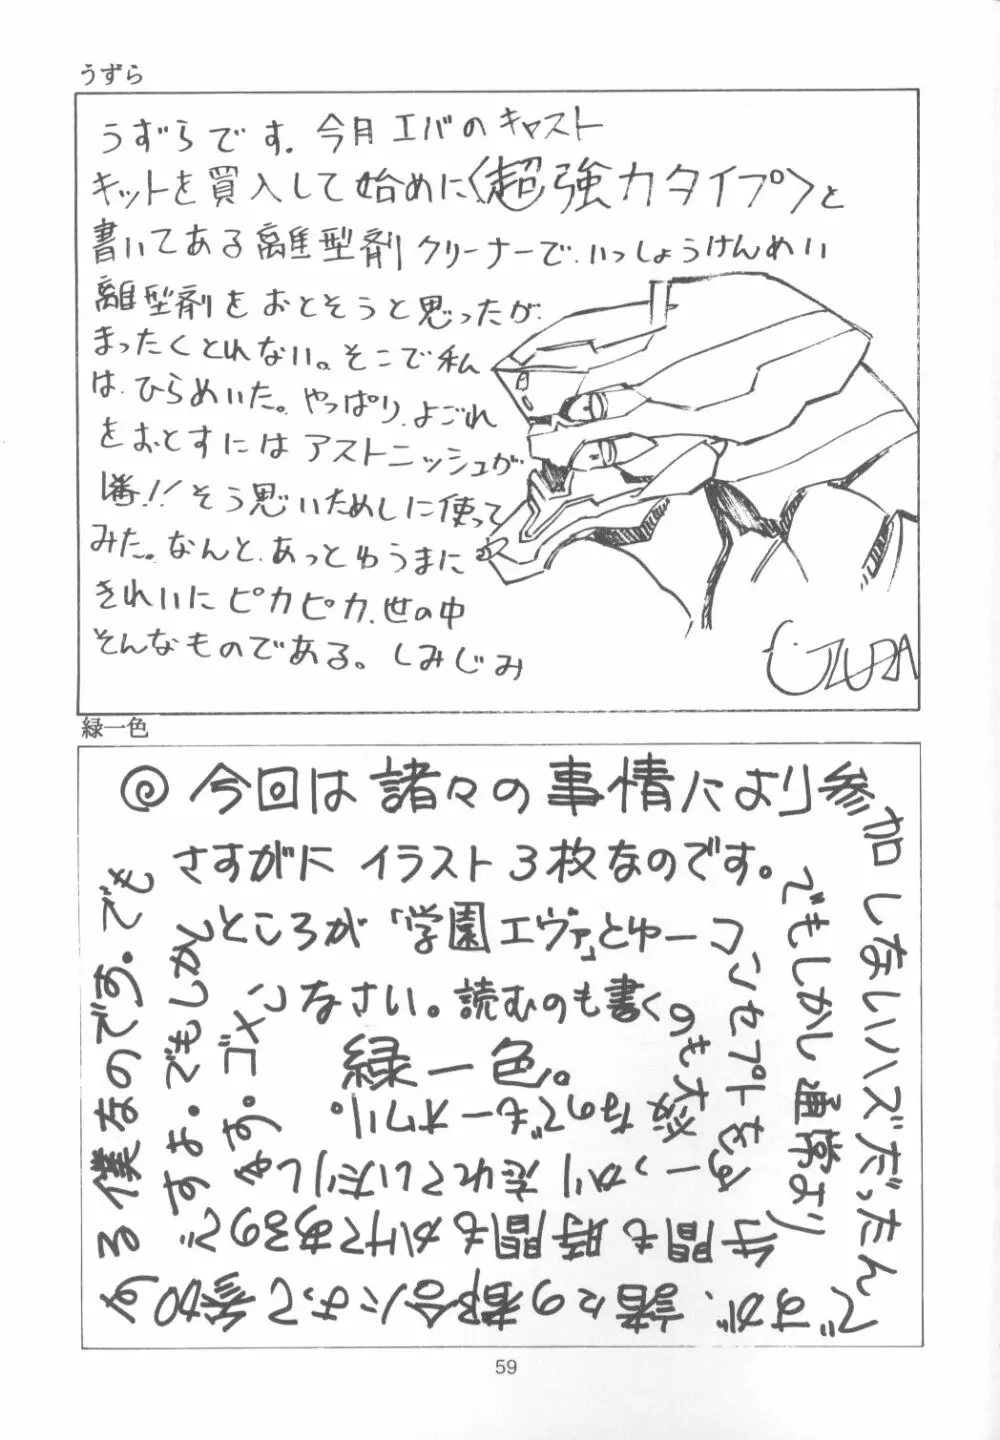 うずら
うずらです. 今月エバのキャスト
キットを買入して始めに〈超強力タイプ〉と
書いてある離型剤クリーナーで、いっしょうけんめい
離型剤をおとそうと思ったが、
まったくとれない。そこで私
は、ひらめいた。やっぱり、よごれ
をおとすにはアストニッシュが
1番!!そう思いためしに使って
みた。なんと、あっとゆうまに
きれいにピカピカ、世の中
そんなものである。しみじみ
UZURA
緑一色
◎今回は諸々の事情により参
加しないハズだったんで
すが、諸々の都合によって参加す
る僕なのです。でも
さすがにイラスト3枚なのです。
でもしかし通常より
手間も時間もかけてあるので
すよ。でもしかし
ところが「学園エヴァ」とゆーコ
ンセプトをす
ーっかり忘れていたりし
ます。ゴメ
ンなさい。読むのも書く
のも大変
なのでもーオワリ。
緑一色。
59